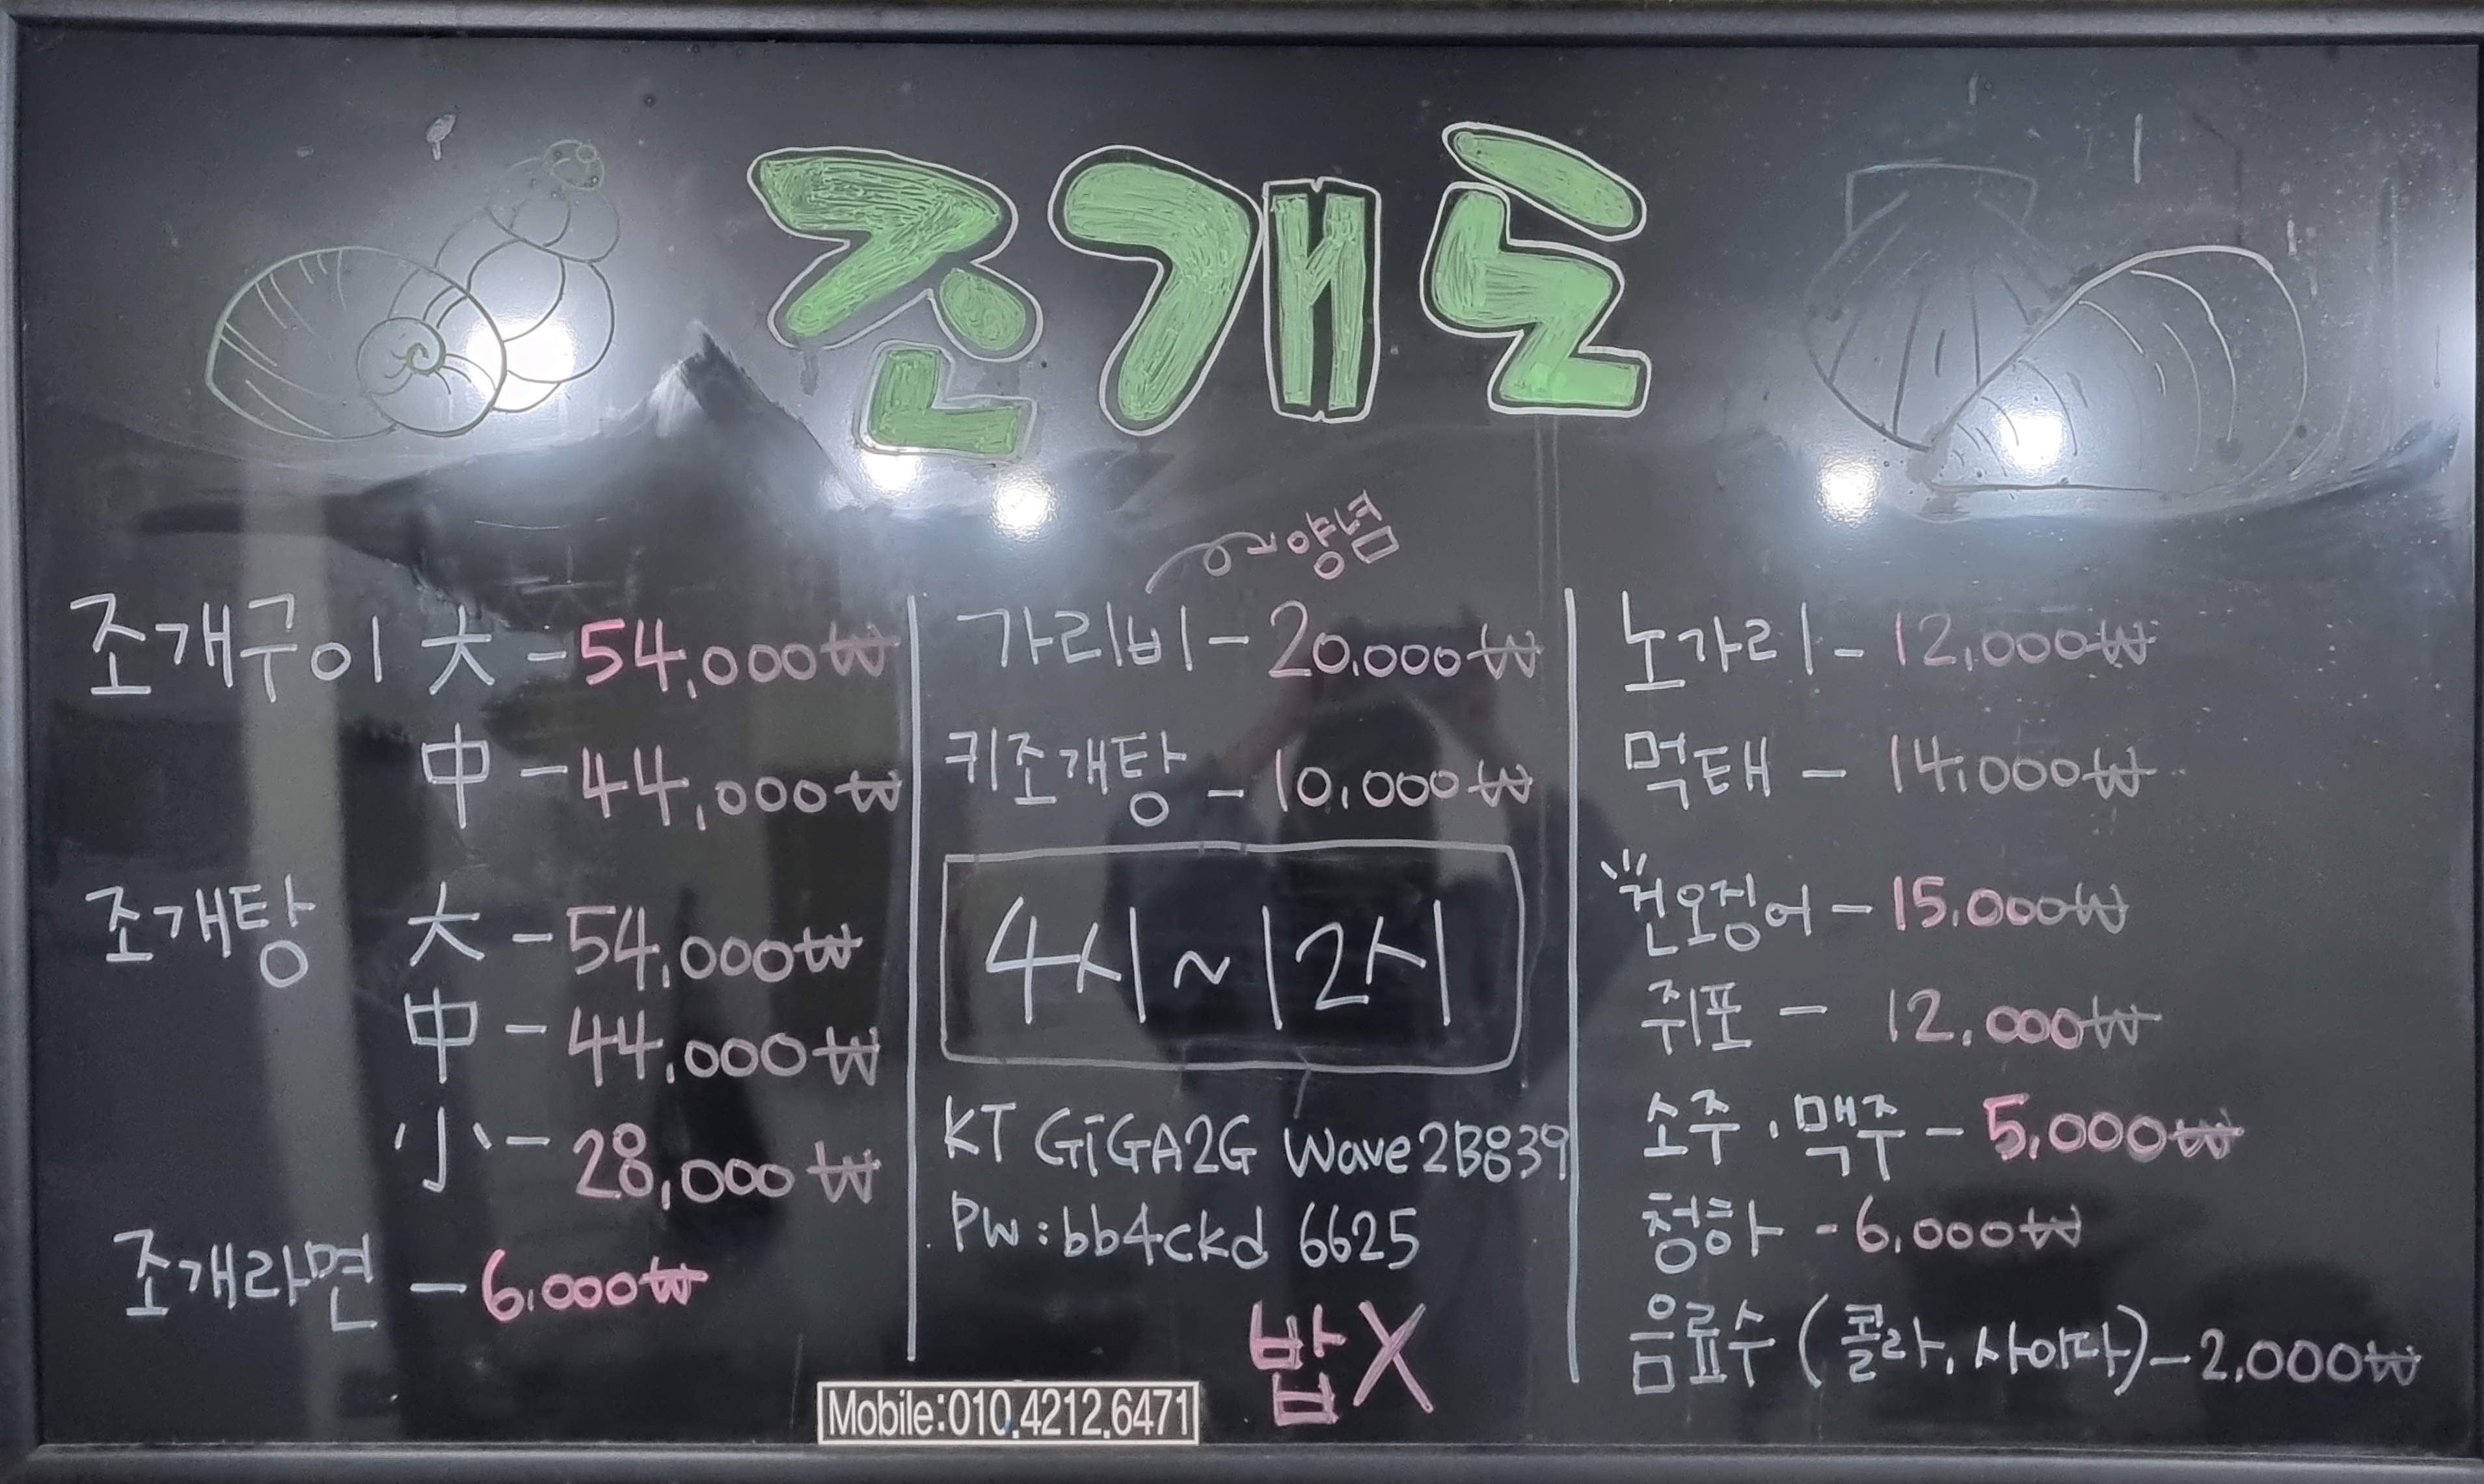 조개도
조개구이 大 - 54,000₩
中 - 44,000₩
조개탕 大 - 54,000₩
中 - 44,000₩
小 - 28,000₩
조개라면 - 6,000₩
양념
가리비 - 20,000₩
키조개탕 - 10,000₩
4시 ~ 12시
KT GiGA2G Wave2B839
PW : bb4ckd 6625
밥X
Mobile:010.4212.6471
노가리 - 12,000₩
먹태 - 14,000₩
건오징어 - 15,000₩
쥐포 - 12,000₩
소주 · 맥주 - 5,000₩
청하 - 6,000₩
음료수 (콜라, 사이다) - 2,000₩